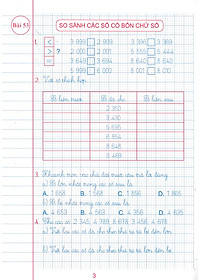 Bài 53
SO SÁNH CÁC SỐ CÓ BỐN CHỮ SỐ
1.
> 3 999 2 909 3 396 3 369
< ? 2 001 5 555 5 444
= 3 649 3 694 8 640 8 640
5 999 6 000 8 001 8 010
2. Viết số thích hợp.
Số liền trước Số đã cho Số liền sau
2 350
3 430
5 695
8 354
6 848
8 469
3. Khoanh tròn các chữ đặt trước câu trả lời đúng.
a) Số lớn nhất trong các số sau là:
A. 1 658 B. 1 568 C. 1 856 D. 1 865
b) Số bé nhất trong các số sau là:
A. 4 653 B. 4 563 C. 4 356 D. 4 635
4. Cho các số 2 345, 4 789, 8 679, 3 456, 4 678.
a) Viết lại các số đã cho theo thứ tự từ bé đến lớn:
b) Viết lại các số đã cho theo thứ tự từ lớn đến bé:
3